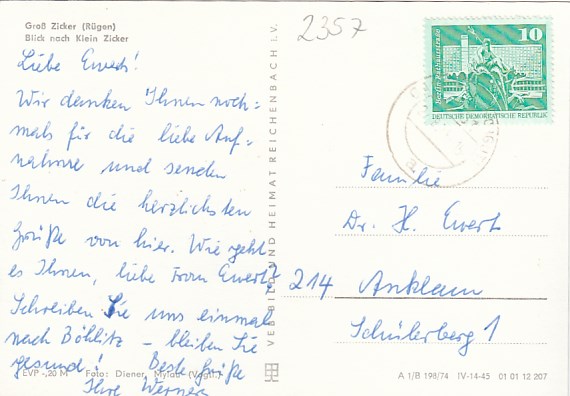 Groß Zicker (Rügen)
Blick nach Klein Zicker
2357
Liebe Ewerts!
Wir danken Ihnen noch=
mals für die liebe Auf-
nahme und senden
Ihnen die herzlichsten
Grüße von hier. Wie geht
es Ihnen, liebe Frau Ewert?
Schreiben Sie uns einmal
nach Böhlitz – bleiben Sie
gesund! Beste Grüße
Ihre Werners
EVP -,20 M Foto: Diener, Mylau (Vogtl.)
VEB BILD UND HEIMAT REICHENBACH I.V.
10
Berlin, Rathausstraße
DEUTSCHE DEMOKRATISCHE REPUBLIK
Familie
Dr. H. Ewert
214 Anklam
Schülerberg 1
A 1/B 198/74 IV-14-45 01 01 12 207